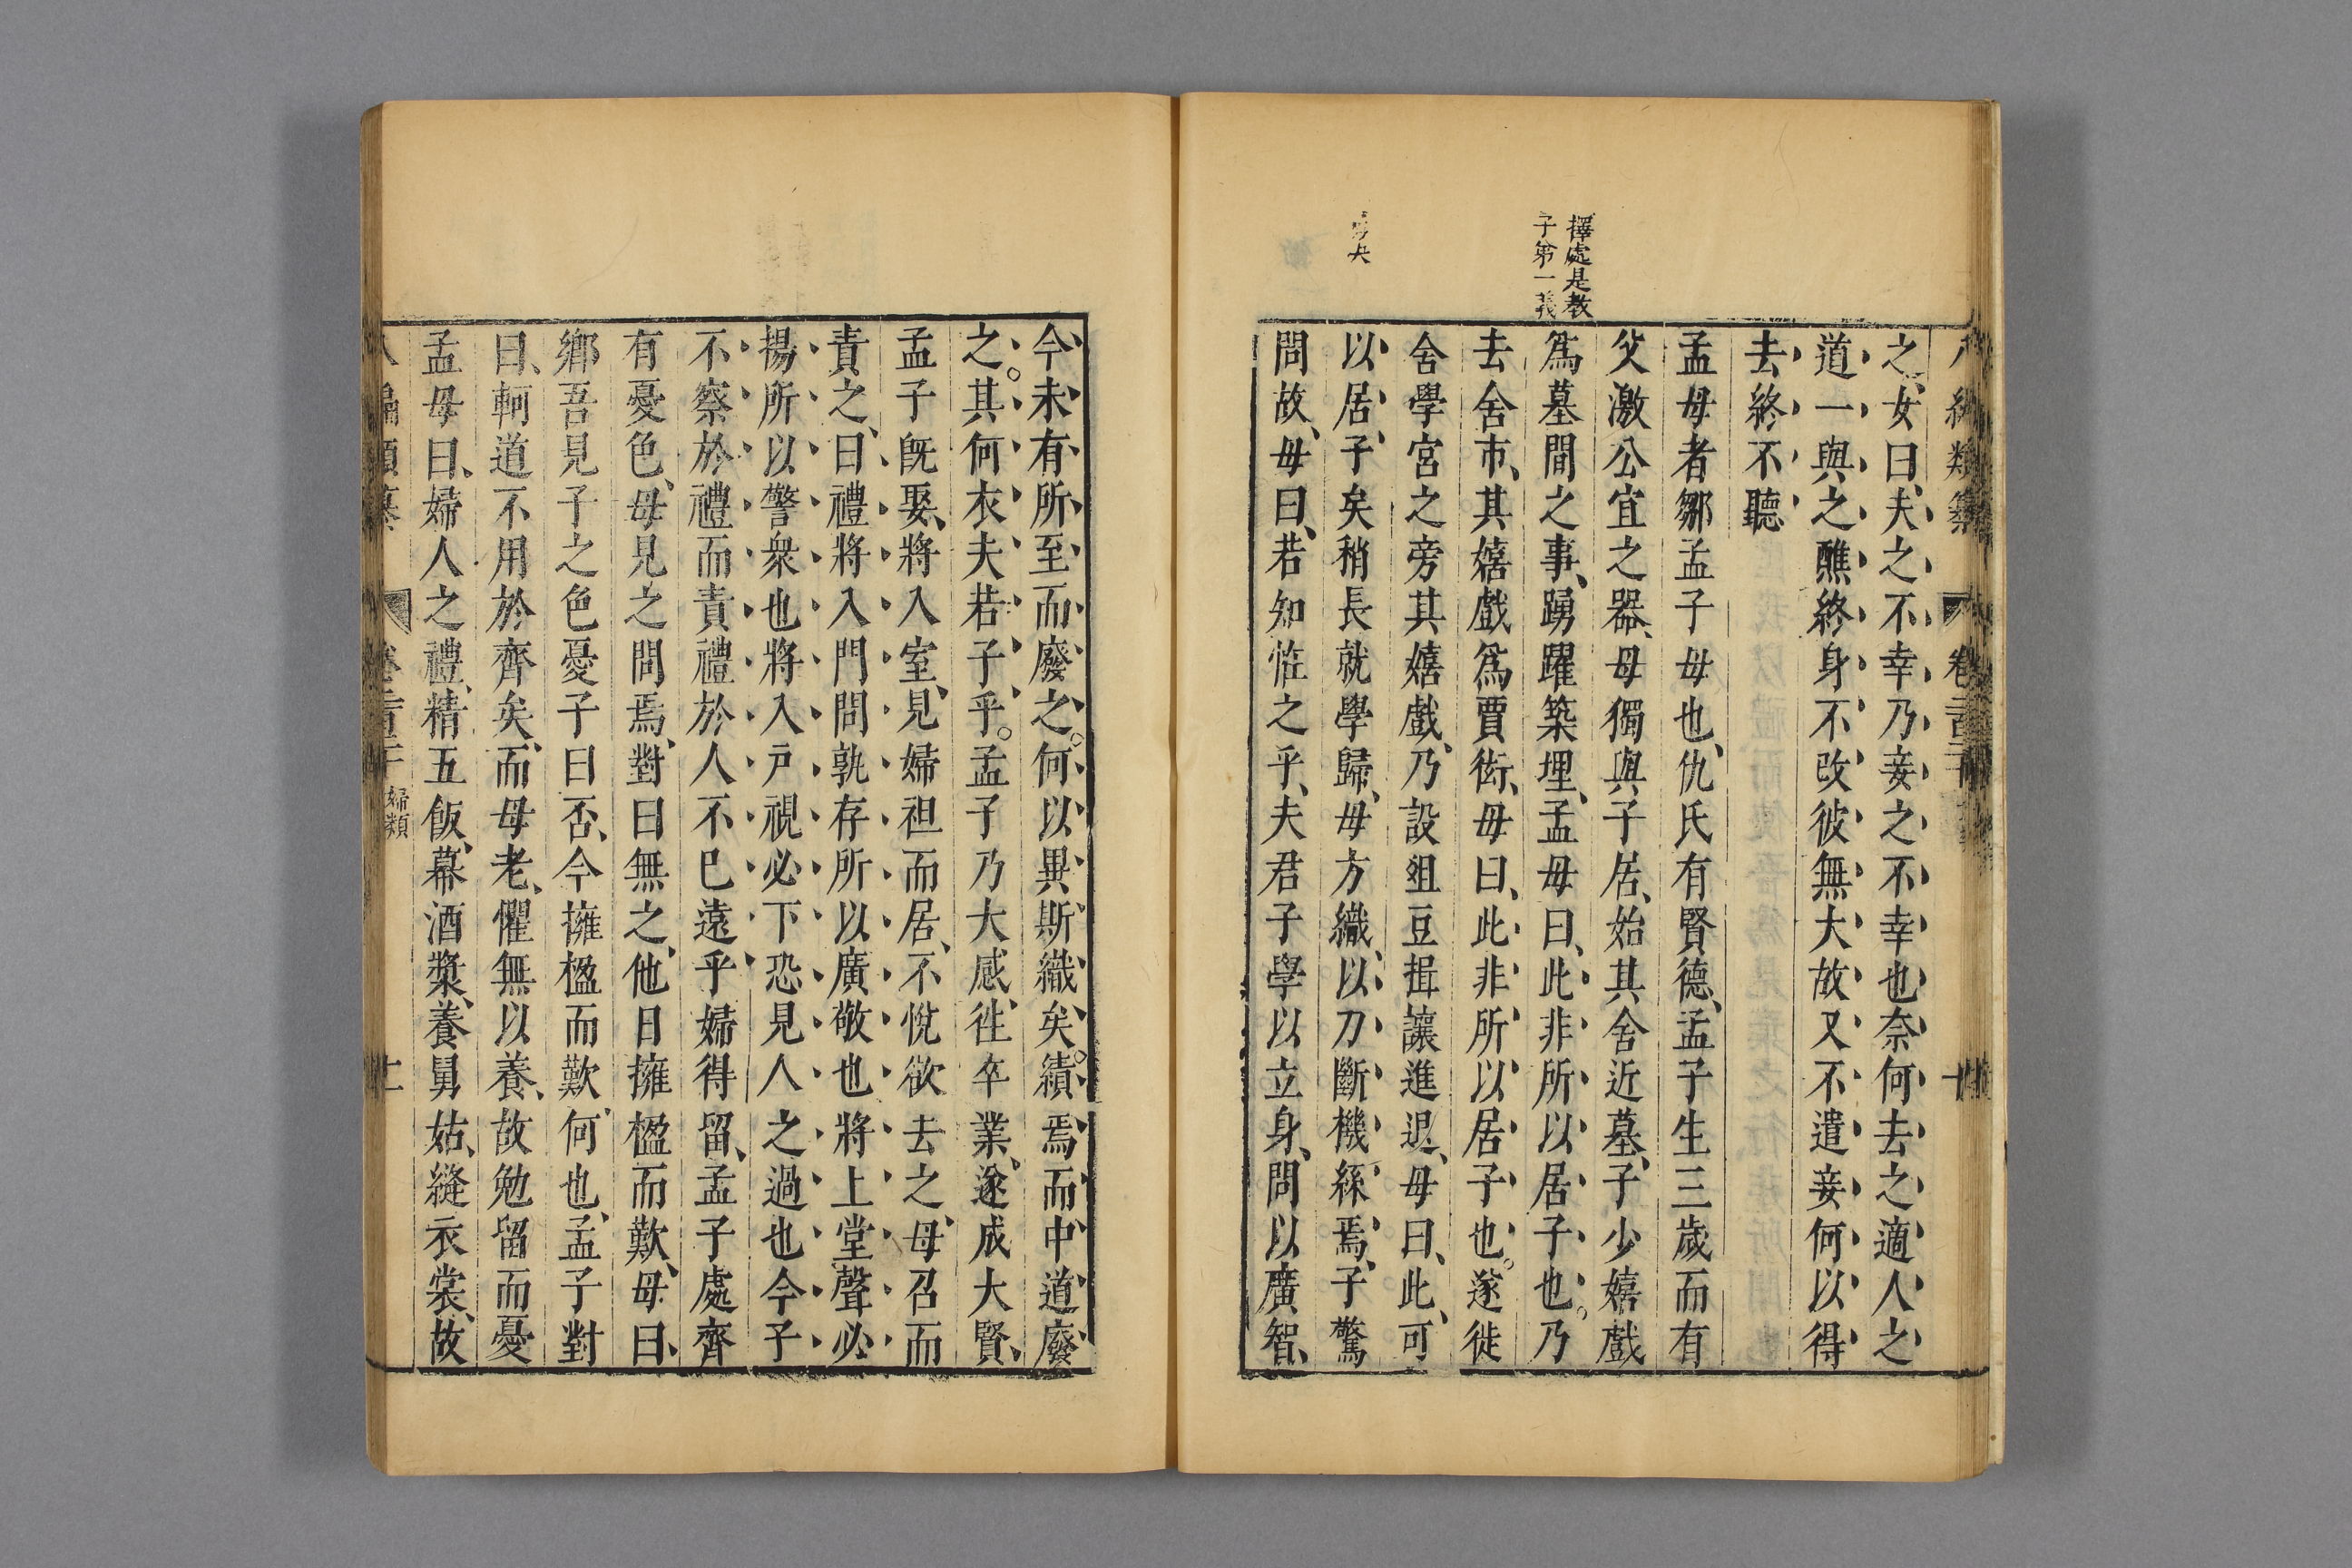 之女曰夫之不幸乃妾之不幸也奈何去之適人之
道一與之醮終身不改彼無大故又不遣妾何以得
去終不聽
擇處是教
子第一義
孟母者鄒孟子母也仇氏有賢德孟子生三歲而有
父激公宜之器母獨與子居始其舍近墓子少嬉戲
爲墓間之事踴躍築埋孟母曰此非所以居子也乃
去舍市其嬉戲爲賈衒母曰此非所以居子也遂徙
舍學宮之旁其嬉戲乃設俎豆揖讓進退母曰此可
以居子矣稍長就學歸母方織以刀斷機絲焉子驚
問故母曰若知恠之乎夫君子學以立身問以廣智
今未有所至而廢之何以異斯織矣績焉而中道廢
之其何衣夫若子乎孟子乃大感徃卒業遂成大賢
孟子旣娶將入室見婦袒而居不悅欲去之母召而
責之曰禮將入門問孰存所以廣敬也將上堂聲必
揚所以警衆也將入戶視必下恐見人之過也今子
不察於禮而責禮於人不巳遠乎婦得留孟子處齊
有憂色母見之問焉對曰無之他日擁楹而歎母曰
鄉吾見子之色憂子曰否今擁楹而歎何也孟子對
曰軻道不用於齊矣而母老懼無以養故勉留而憂
孟母曰婦人之禮精五飯幕酒漿養舅姑縫衣裳故
婦類